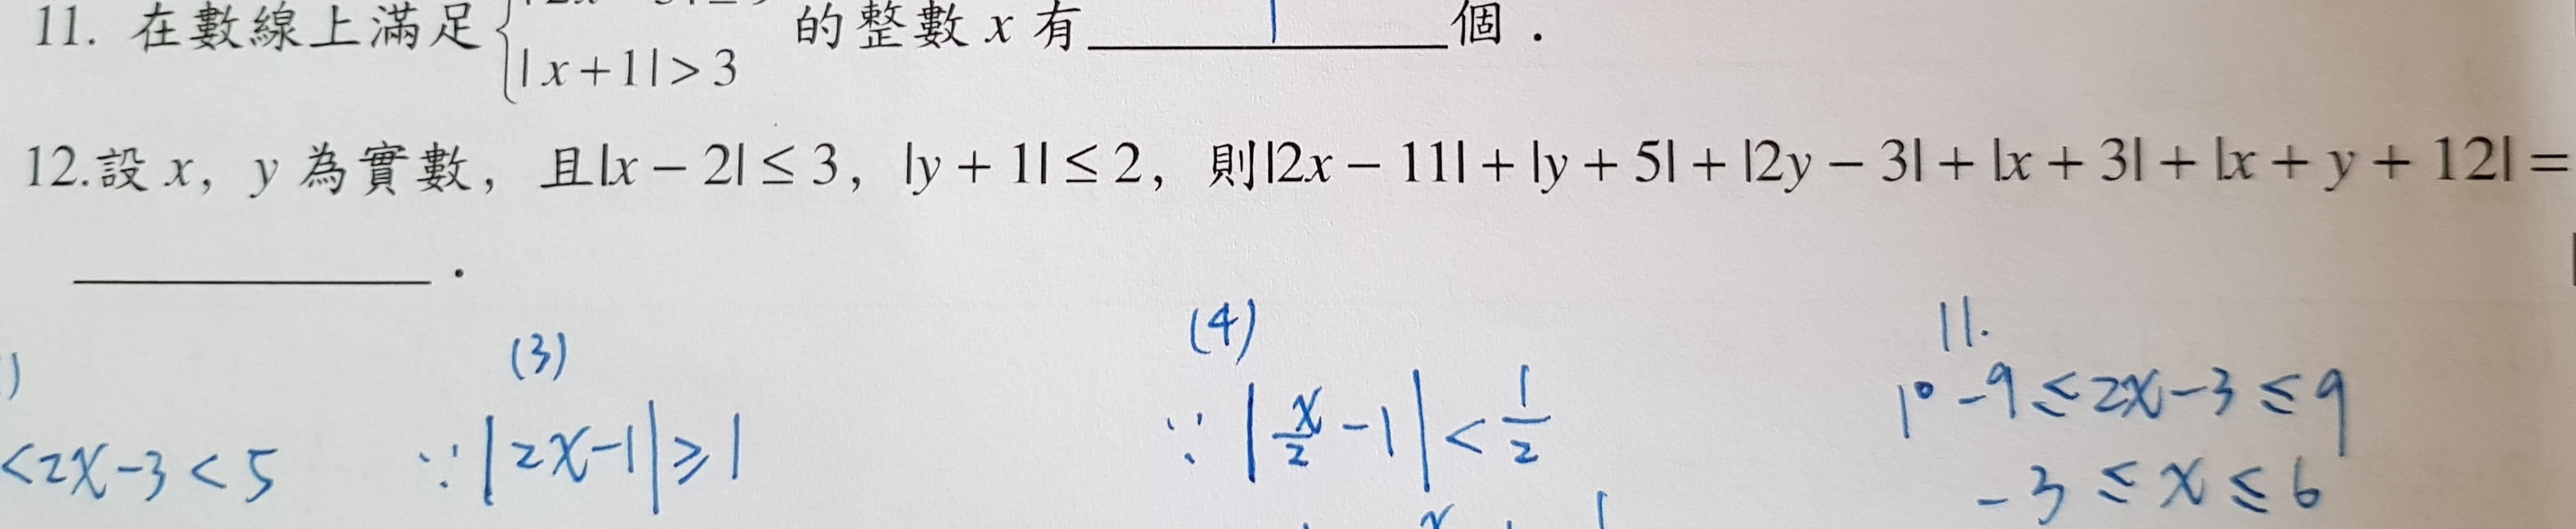 11. 在數線上滿足{|x+1|>3 的整數 x 有 1 個．
12.設 x，y 為實數，且|x − 2| ≤ 3，|y + 1| ≤ 2，則|2x − 11| + |y + 5| + |2y − 3| + |x + 3| + |x + y + 12| =
．
(3)
(4)
11.
<2x-3<5
∵|2x-1|≥1
∵|x/2-1|<1/2
1° -9≤2x-3≤9
-3≤x≤6